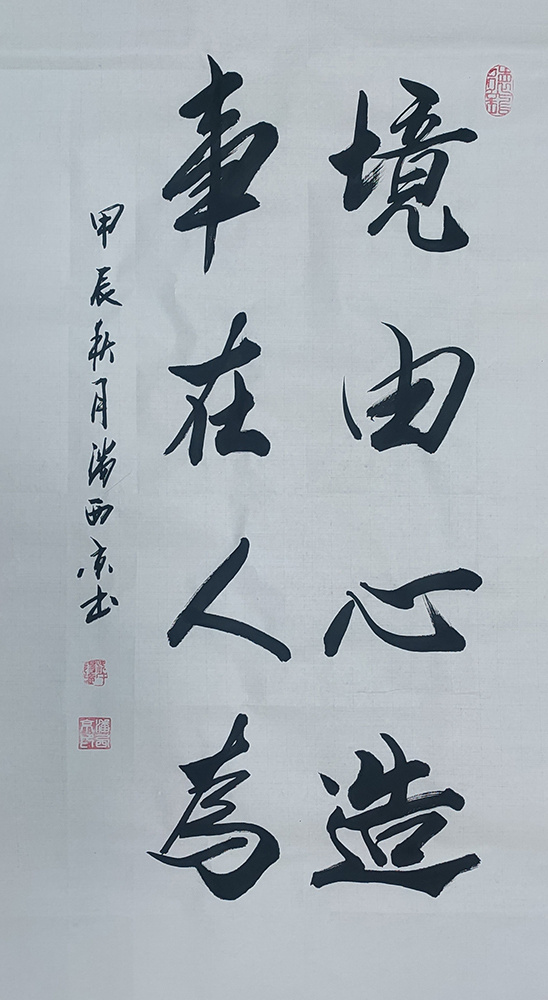 境由心造
事在人為
甲辰秋月潘西京书